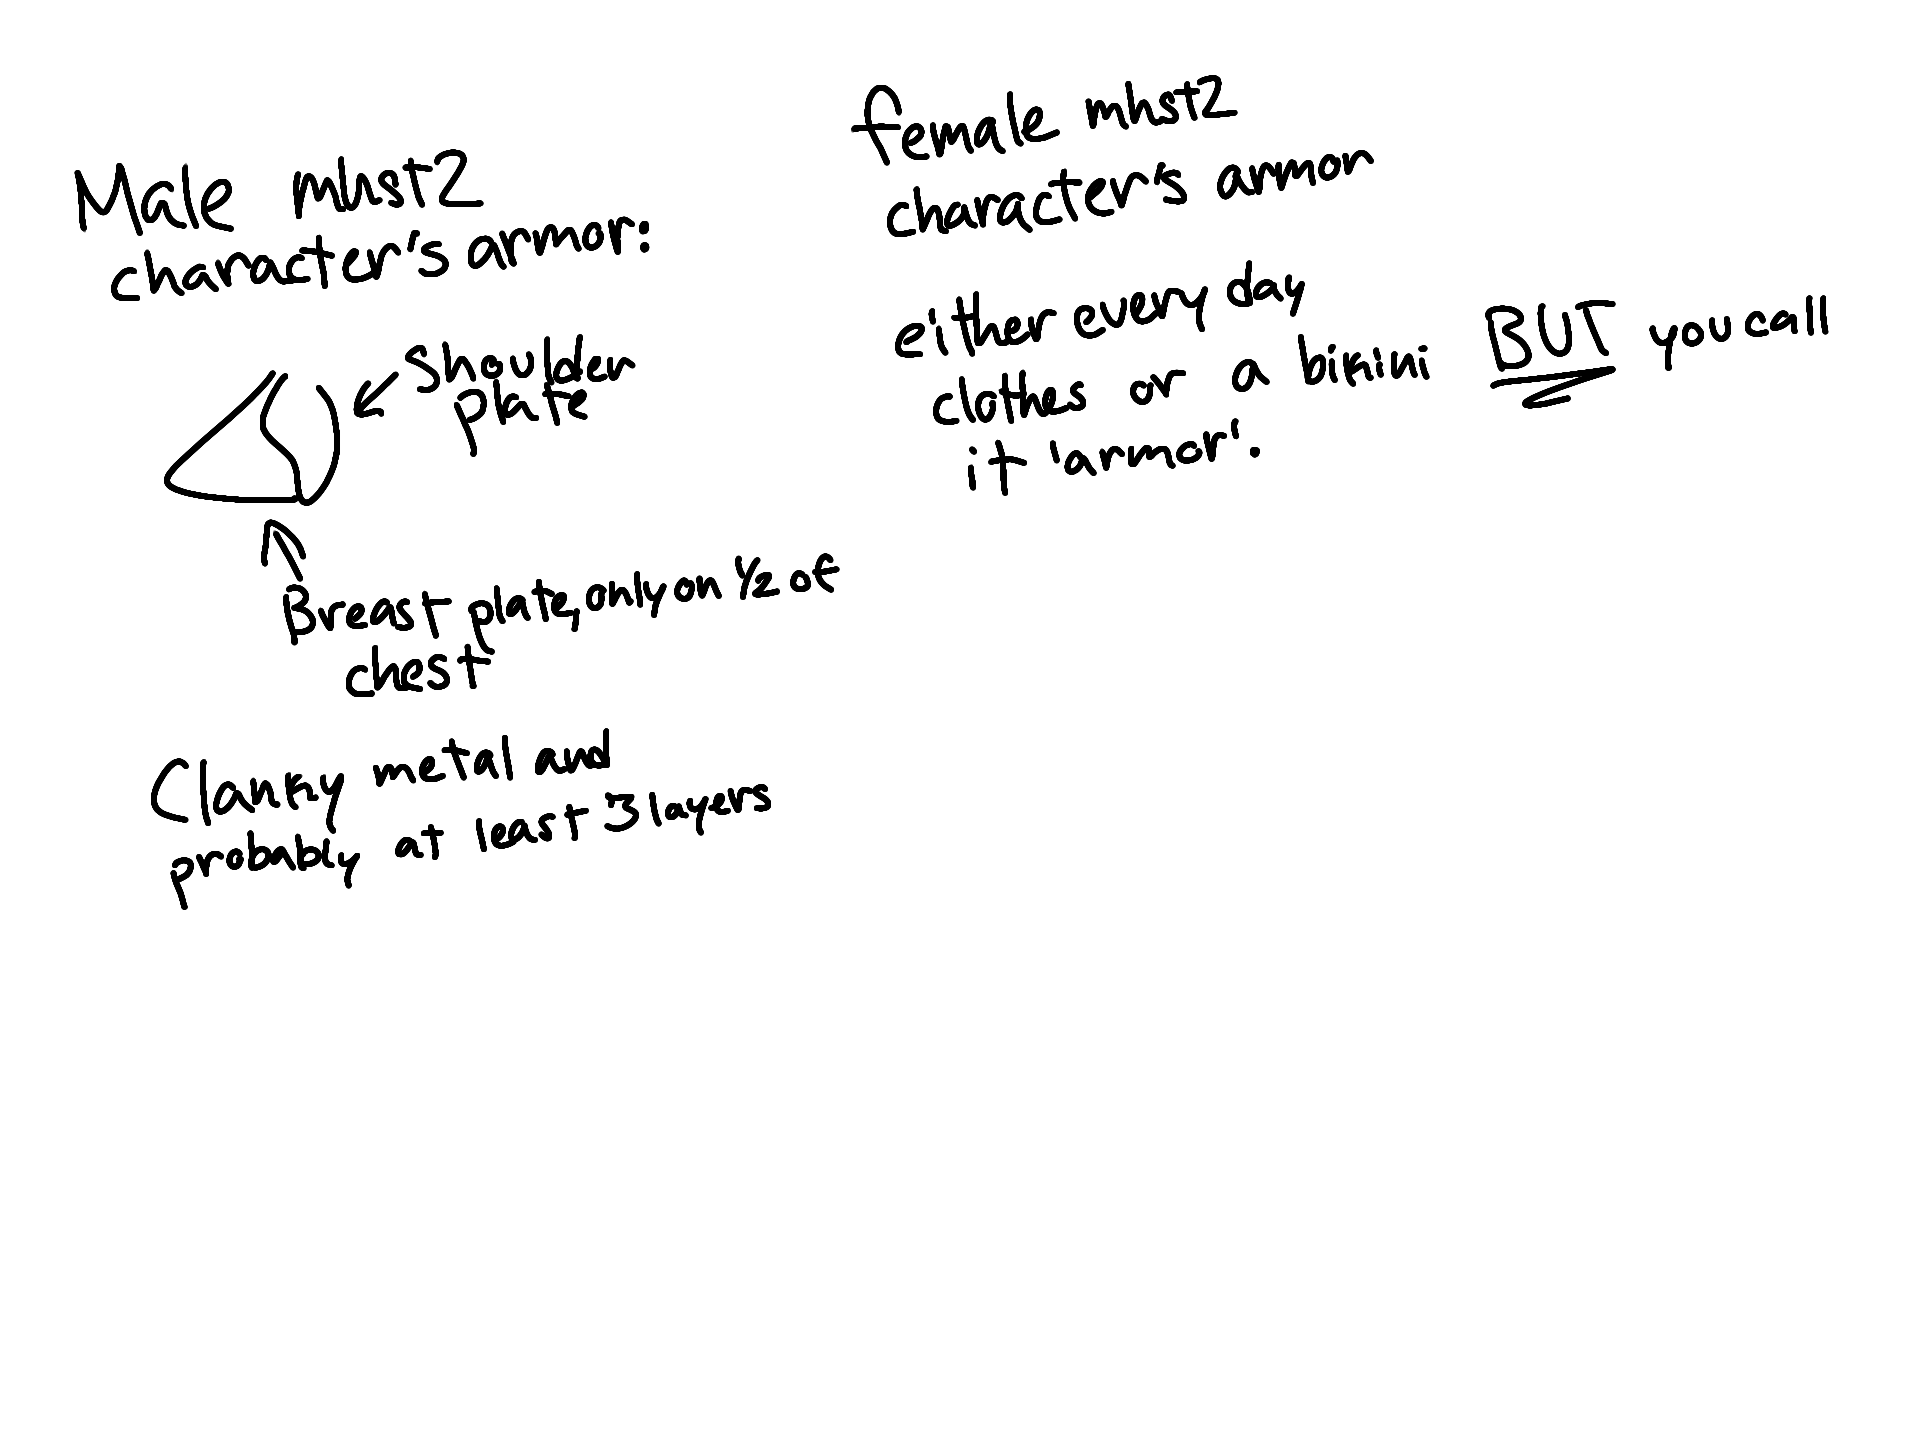 Male mhst2
character's armor:
Shoulder
plate
Breast plate, only on 1/2 of
chest
Clanky metal and
probably at least 3 layers
female mhst2
character's armor
either every day
clothes or a bikini BUT you call
it 'armor'.